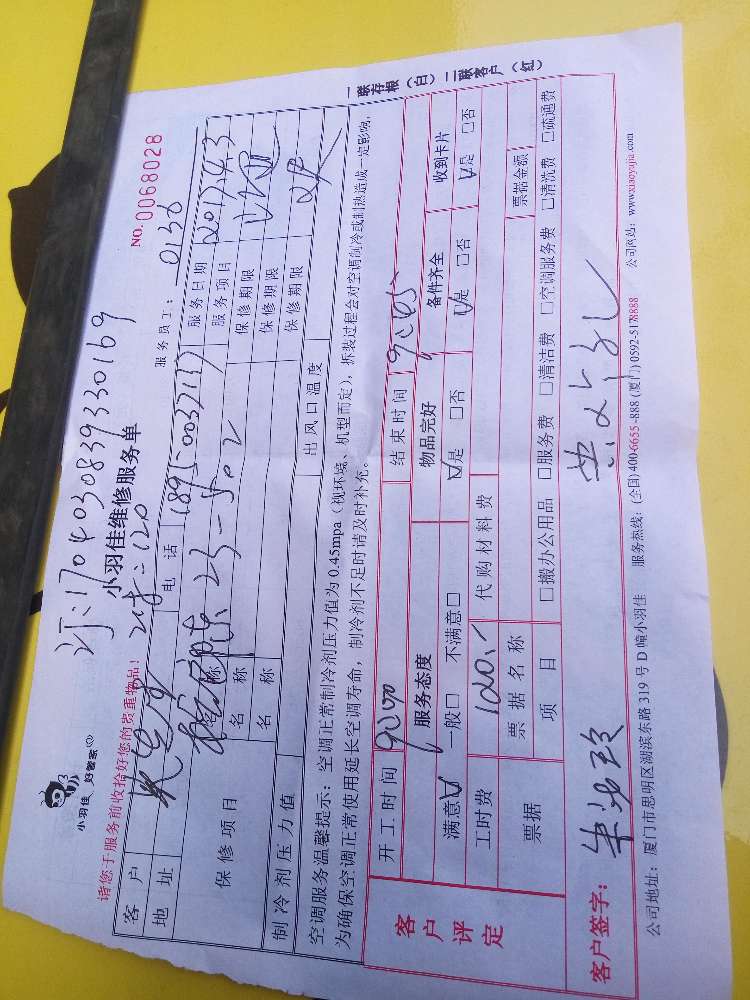 订:170403083933 0169
小羽佳 好管家
小羽佳维修服务单
NO. 0068028
请您于服务前收拾好您的贵重物品!
2H=120
服务员工: 0136
客户
电话
服务日期 2017.4.3
地址
23-502
服务项目
保修项目
名称
保修期限
名称
保修期限
名称
保修期限
制冷剂压力值
出风口温度
空调服务温馨提示:空调正常制冷剂压力值为0.45mpa(视环境、机型而定),拆装过程会对空调制冷或制热造成一定影响,
为确保空调正常使用延长空调寿命,制冷剂不足时请及时补充。
一联存根(白)二联客户(红)
客户评定
开工时间
结束时间
服务态度
物品完好
备件齐全
收到卡片
满意☑ 一般□ 不满意□
☑是 □否
☑是 □否
☑是 □否
工时费 120.
代购材料费
票据
票据名称
票据金额
项目
□搬办公用品 □服务费 □清洁费 □空调服务费 □清洗费 □疏通费
客户签字:
公司地址:厦门市思明区湖滨东路319号D幢小羽佳
服务热线:(全国)400-6655-888 (厦门)0592-5178888
公司网站:www.xiaoyujia.com